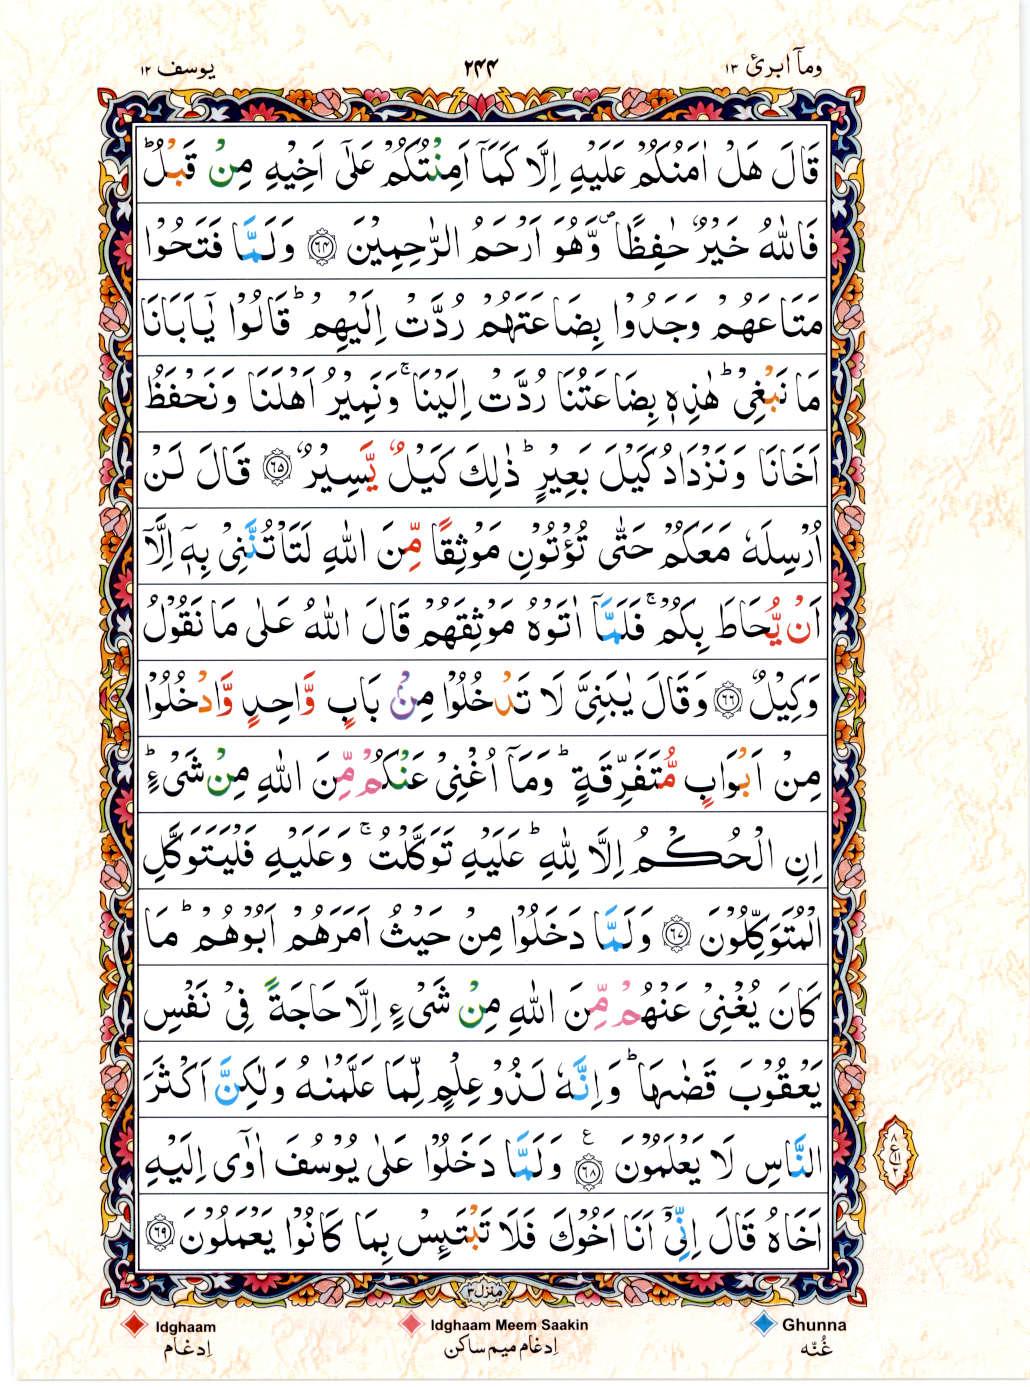 ومآ ابرئ ١٣
٢٤٤
يوسف ١٢
قَالَ هَلْ اٰمَنُكُمْ عَلَيْهِ اِلَّا كَمَآ اَمِنْتُكُمْ عَلٰٓى اَخِيْهِ مِنْ قَبْلُ ؕ
فَاللّٰهُ خَيْرٌ حٰفِظًا ۪ وَّهُوَ اَرْحَمُ الرّٰحِمِيْنَ ﴿۶۴﴾ وَلَمَّا فَتَحُوْا
مَتَاعَهُمْ وَجَدُوْا بِضَاعَتَهُمْ رُدَّتْ اِلَيْهِمْ ؕ قَالُوْا يٰٓاَبَانَا
مَا نَبْغِىْ ؕ هٰذِهٖ بِضَاعَتُنَا رُدَّتْ اِلَيْنَا ۚ وَنَمِيْرُ اَهْلَنَا وَنَحْفَظُ
اَخَانَا وَنَزْدَادُ كَيْلَ بَعِيْرٍ ؕ ذٰلِكَ كَيْلٌ يَّسِيْرٌ ﴿۶۵﴾ قَالَ لَنْ
اُرْسِلَهٗ مَعَكُمْ حَتّٰى تُؤْتُوْنِ مَوْثِقًا مِّنَ اللّٰهِ لَتَاْتُنَّنِىْ بِهٖۤ اِلَّاۤ
اَنْ يُّحَاطَ بِكُمْ ۚ فَلَمَّاۤ اٰتَوْهُ مَوْثِقَهُمْ قَالَ اللّٰهُ عَلٰى مَا نَقُوْلُ
وَكِيْلٌ ﴿۶۶﴾ وَقَالَ يٰبَنِىَّ لَا تَدْخُلُوْا مِنْۢ بَابٍ وَّاحِدٍ وَّادْخُلُوْا
مِنْ اَبْوَابٍ مُّتَفَرِّقَةٍ ؕ وَمَاۤ اُغْنِىْ عَنْكُمْ مِّنَ اللّٰهِ مِنْ شَىْءٍ ؕ
اِنِ الْحُكْمُ اِلَّا لِلّٰهِ ؕ عَلَيْهِ تَوَكَّلْتُ ۚ وَعَلَيْهِ فَلْيَتَوَكَّلِ
الْمُتَوَكِّلُوْنَ ﴿۶۷﴾ وَلَمَّا دَخَلُوْا مِنْ حَيْثُ اَمَرَهُمْ اَبُوْهُمْ ؕ مَا
كَانَ يُغْنِىْ عَنْهُمْ مِّنَ اللّٰهِ مِنْ شَىْءٍ اِلَّا حَاجَةً فِىْ نَفْسِ
يَعْقُوْبَ قَضٰٮهَا ؕ وَاِنَّهٗ لَذُوْ عِلْمٍ لِّمَا عَلَّمْنٰهُ وَلٰكِنَّ اَكْثَرَ
النَّاسِ لَا يَعْلَمُوْنَ ﴿۶۸﴾ ع وَلَمَّا دَخَلُوْا عَلٰى يُوْسُفَ اٰوٰٓى اِلَيْهِ
اَخَاهُ قَالَ اِنِّىْۤ اَنَا اَخُوْكَ فَلَا تَبْتَٮِٕسْ بِمَا كَانُوْا يَعْمَلُوْنَ ﴿۶۹﴾
منزل ۳
Idghaam
Idghaam Meem Saakin
Ghunna
اِدغام
اِدغام میم ساکن
غُنّه